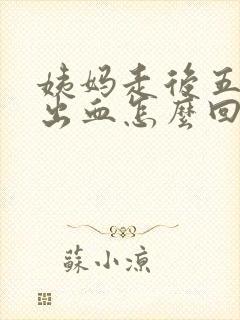 姨妈走後五
出血怎麼回
蘇小涼